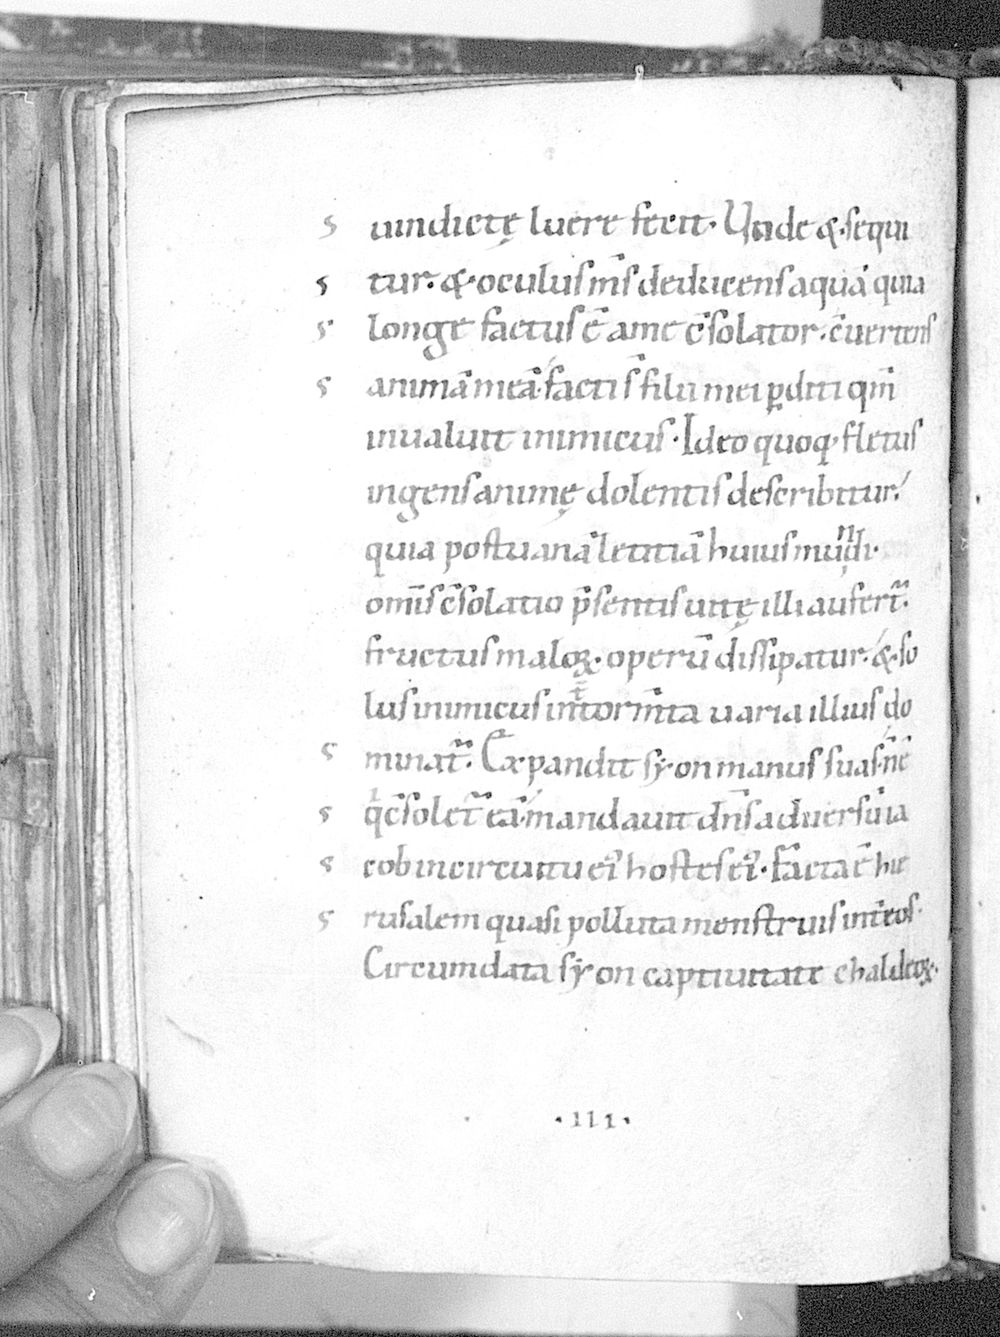 uindictę luere fecit. Unde &. sequi
tur. &. oculus m̄s deducens aquā quia
longe factus ē a me c̄solator. c̄uertens
animā meā. facti s̄ filii mei ꝑditi qm̄
inualuit inimicus. Ideo quoq. fletus
ingens animę dolentis describitur.
quia post uanā letitiā huius mundi.
om̄is c̄solatio p̄sentis uitę illi aufert̄.
fructus maloꝝ. operū dissipatur. &. so
lus inimicus int̄ torm̄ta uaria illius do
minat̄. Expandit syon manus suas. nē
qi c̄solet̄ eā. mandauit dn̄s aduersū ia
cob in circuitu ei' hostes ei'. facta ē hie
rusalem quasi polluta menstruis int̄ eos.
Circumdata syon captiuitate chaldeoꝝ.
.111.